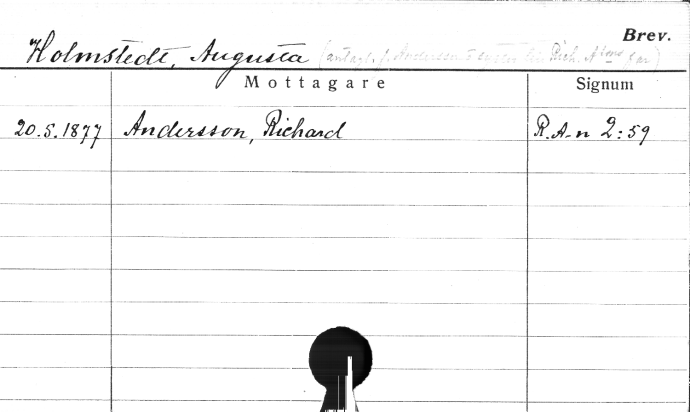 Brev.
Holmstedt, Augusta (antagl. f. Andersson o syster till Rich. A:sons far)
Mottagare Signum
20.5.1877 Andersson, Richard R.A-n 2:59